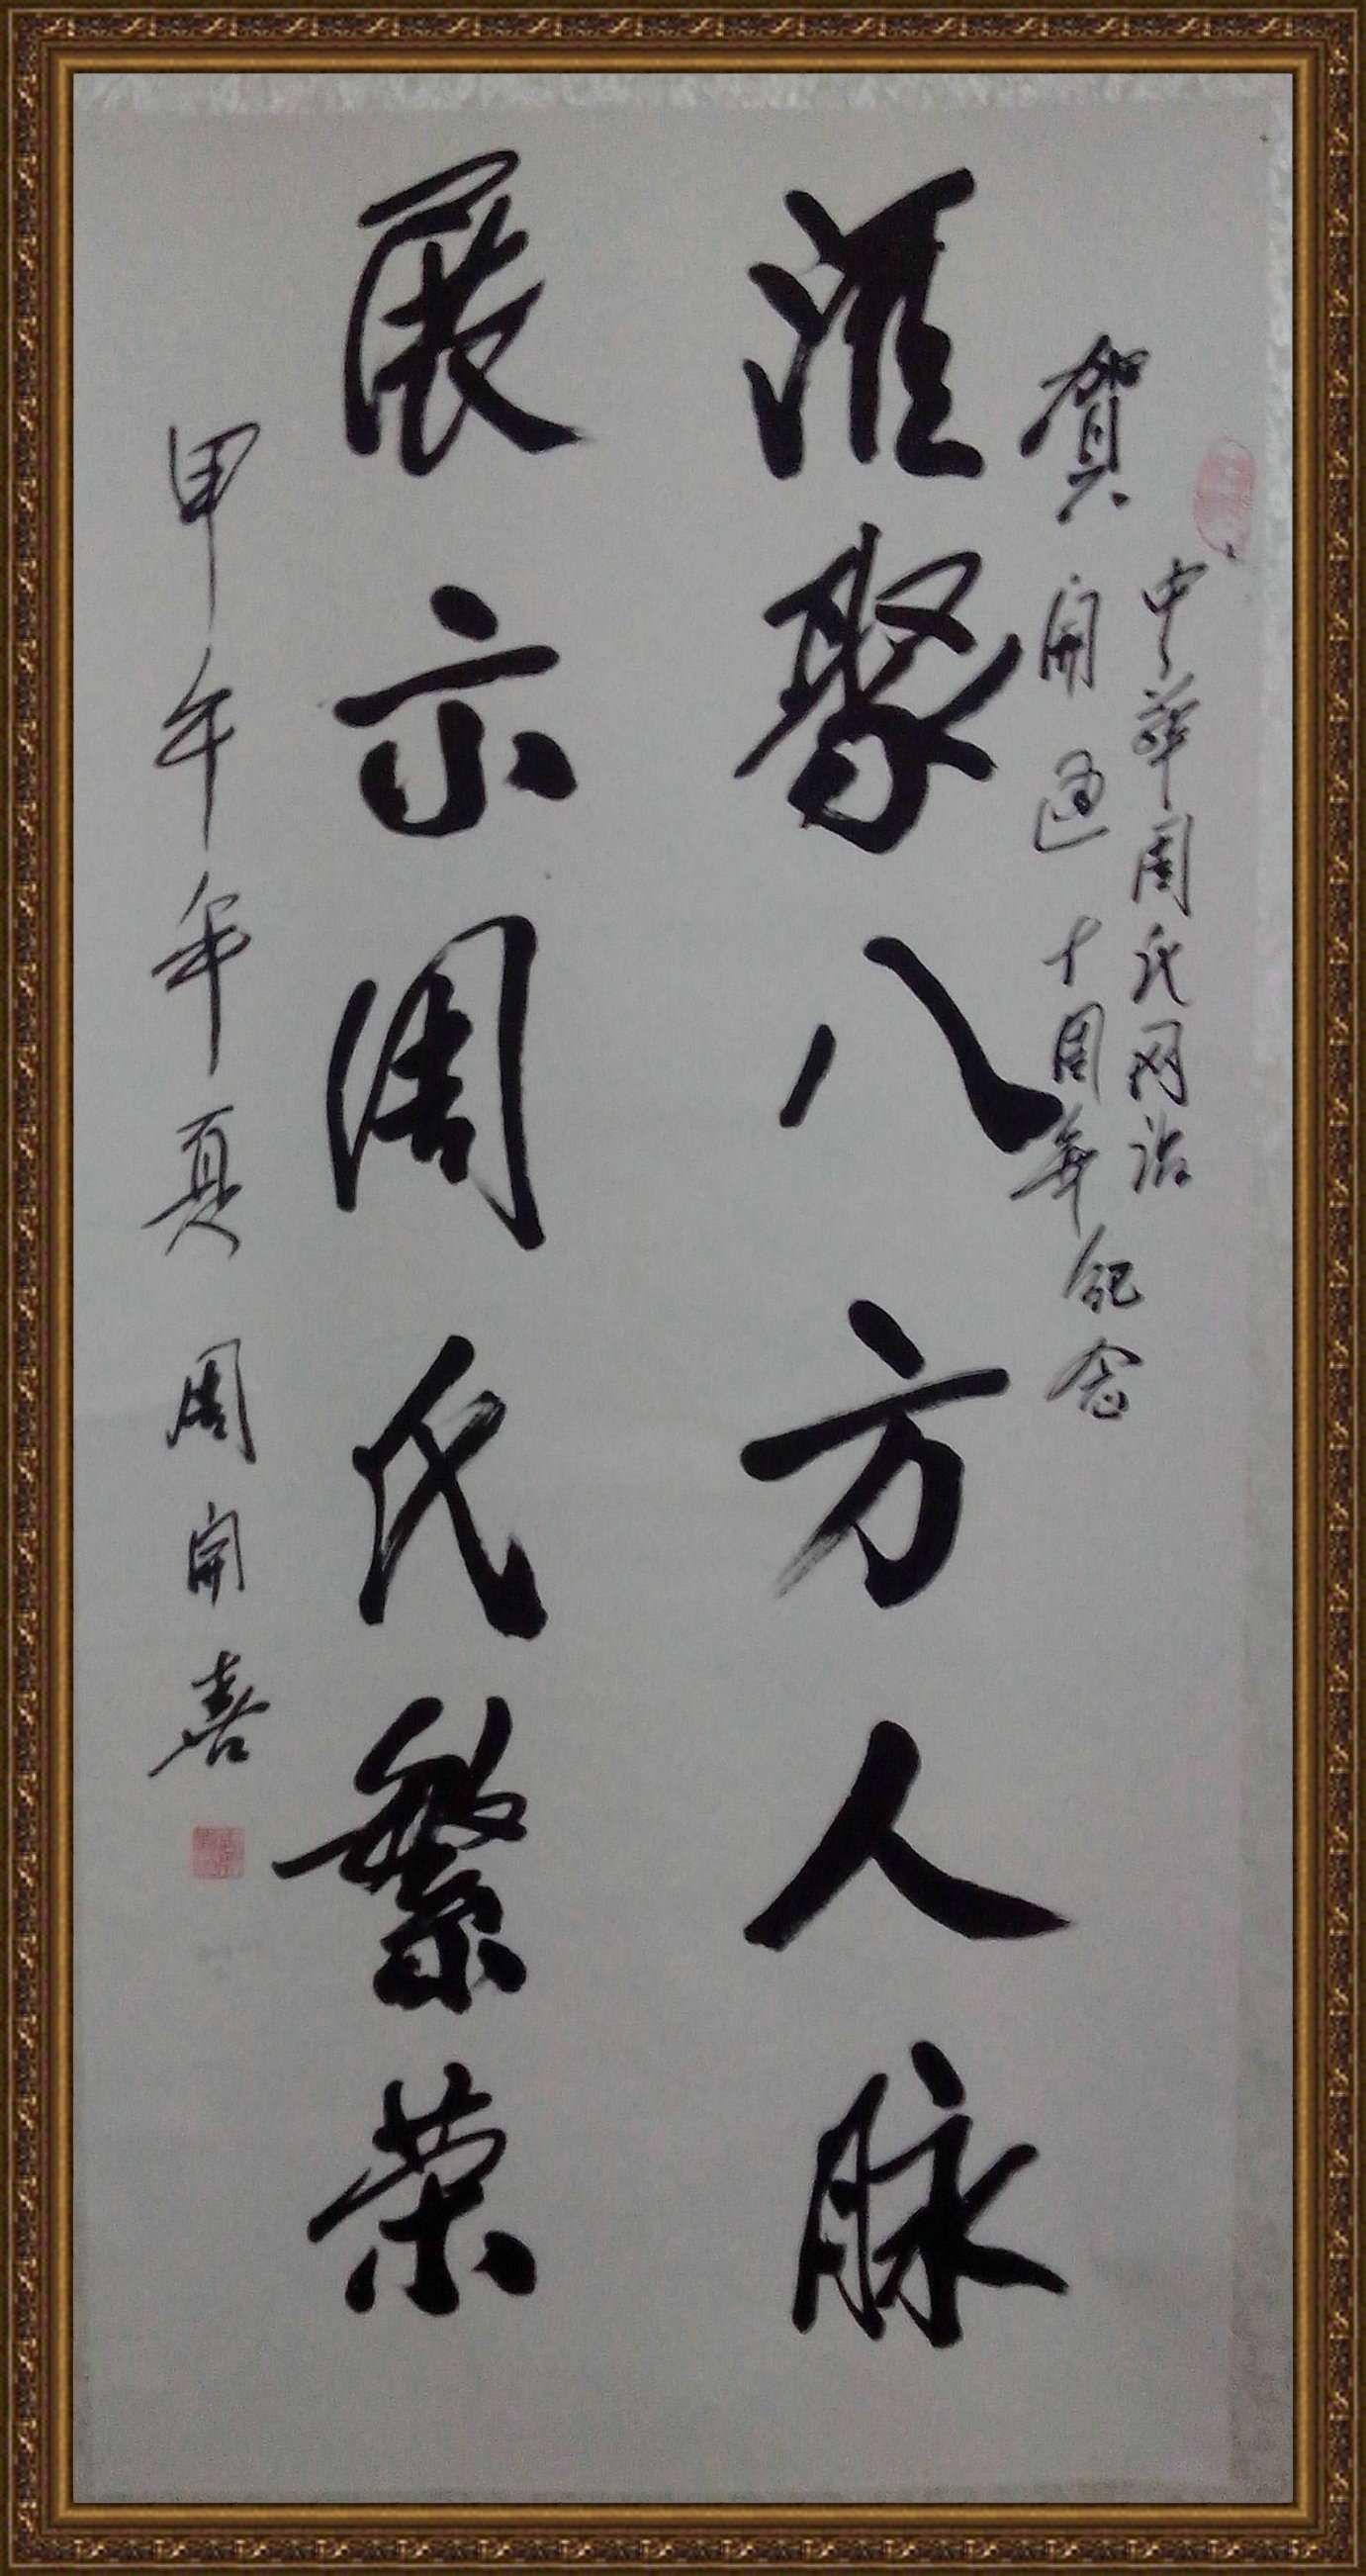 賀中華周氏网站
開通十周年纪念
滙聚八方人脉
展示周氏繁荣
甲午年夏 周開喜